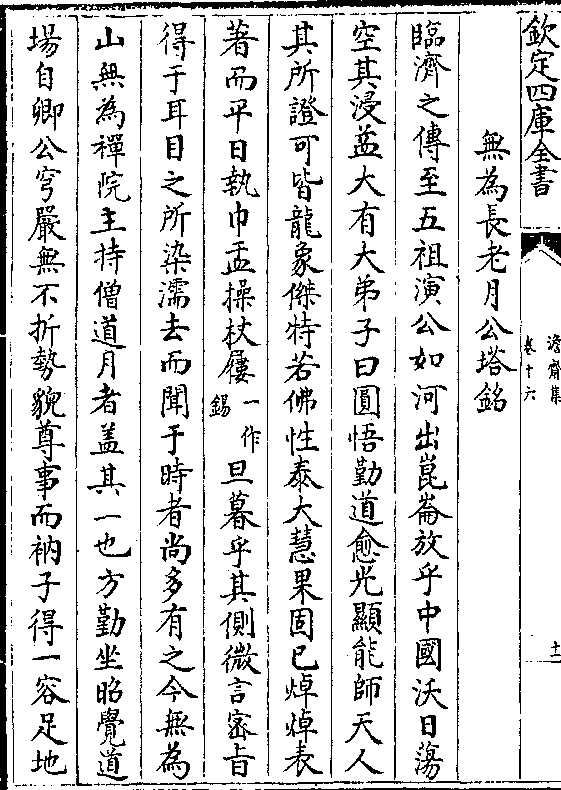 欽定四庫全書
澹齋集
卷十六
十一
無為長老月公塔銘
臨濟之傳至五祖演公如河出崑崙放乎中國沃日蕩
空其浸益大有大弟子曰圓悟勤道愈光顯能師天人
其所證可皆龍象傑特若佛性泰大慧果固已焯焯表
著而平日執巾盂操杖屨一作錫旦暮乎其側微言密旨
得于耳目之所染濡去而聞于時者尚多有之今無為
山無為禪院主持僧道月者盖其一也方勤坐昭覺道
場自卿公穹嚴無不折勢貌尊事而衲子得一容足地